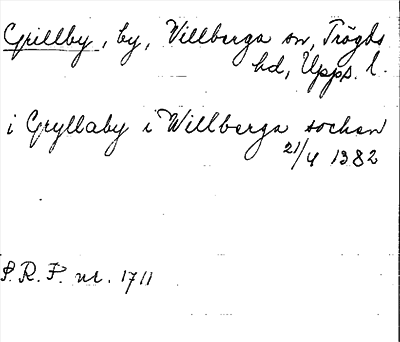 Grillby, by, Villberga sn, Trögds
hd, Upps. l.
i Gryllaby i Willberga sochan
21/4 1382
S.R.P. nr. 1711